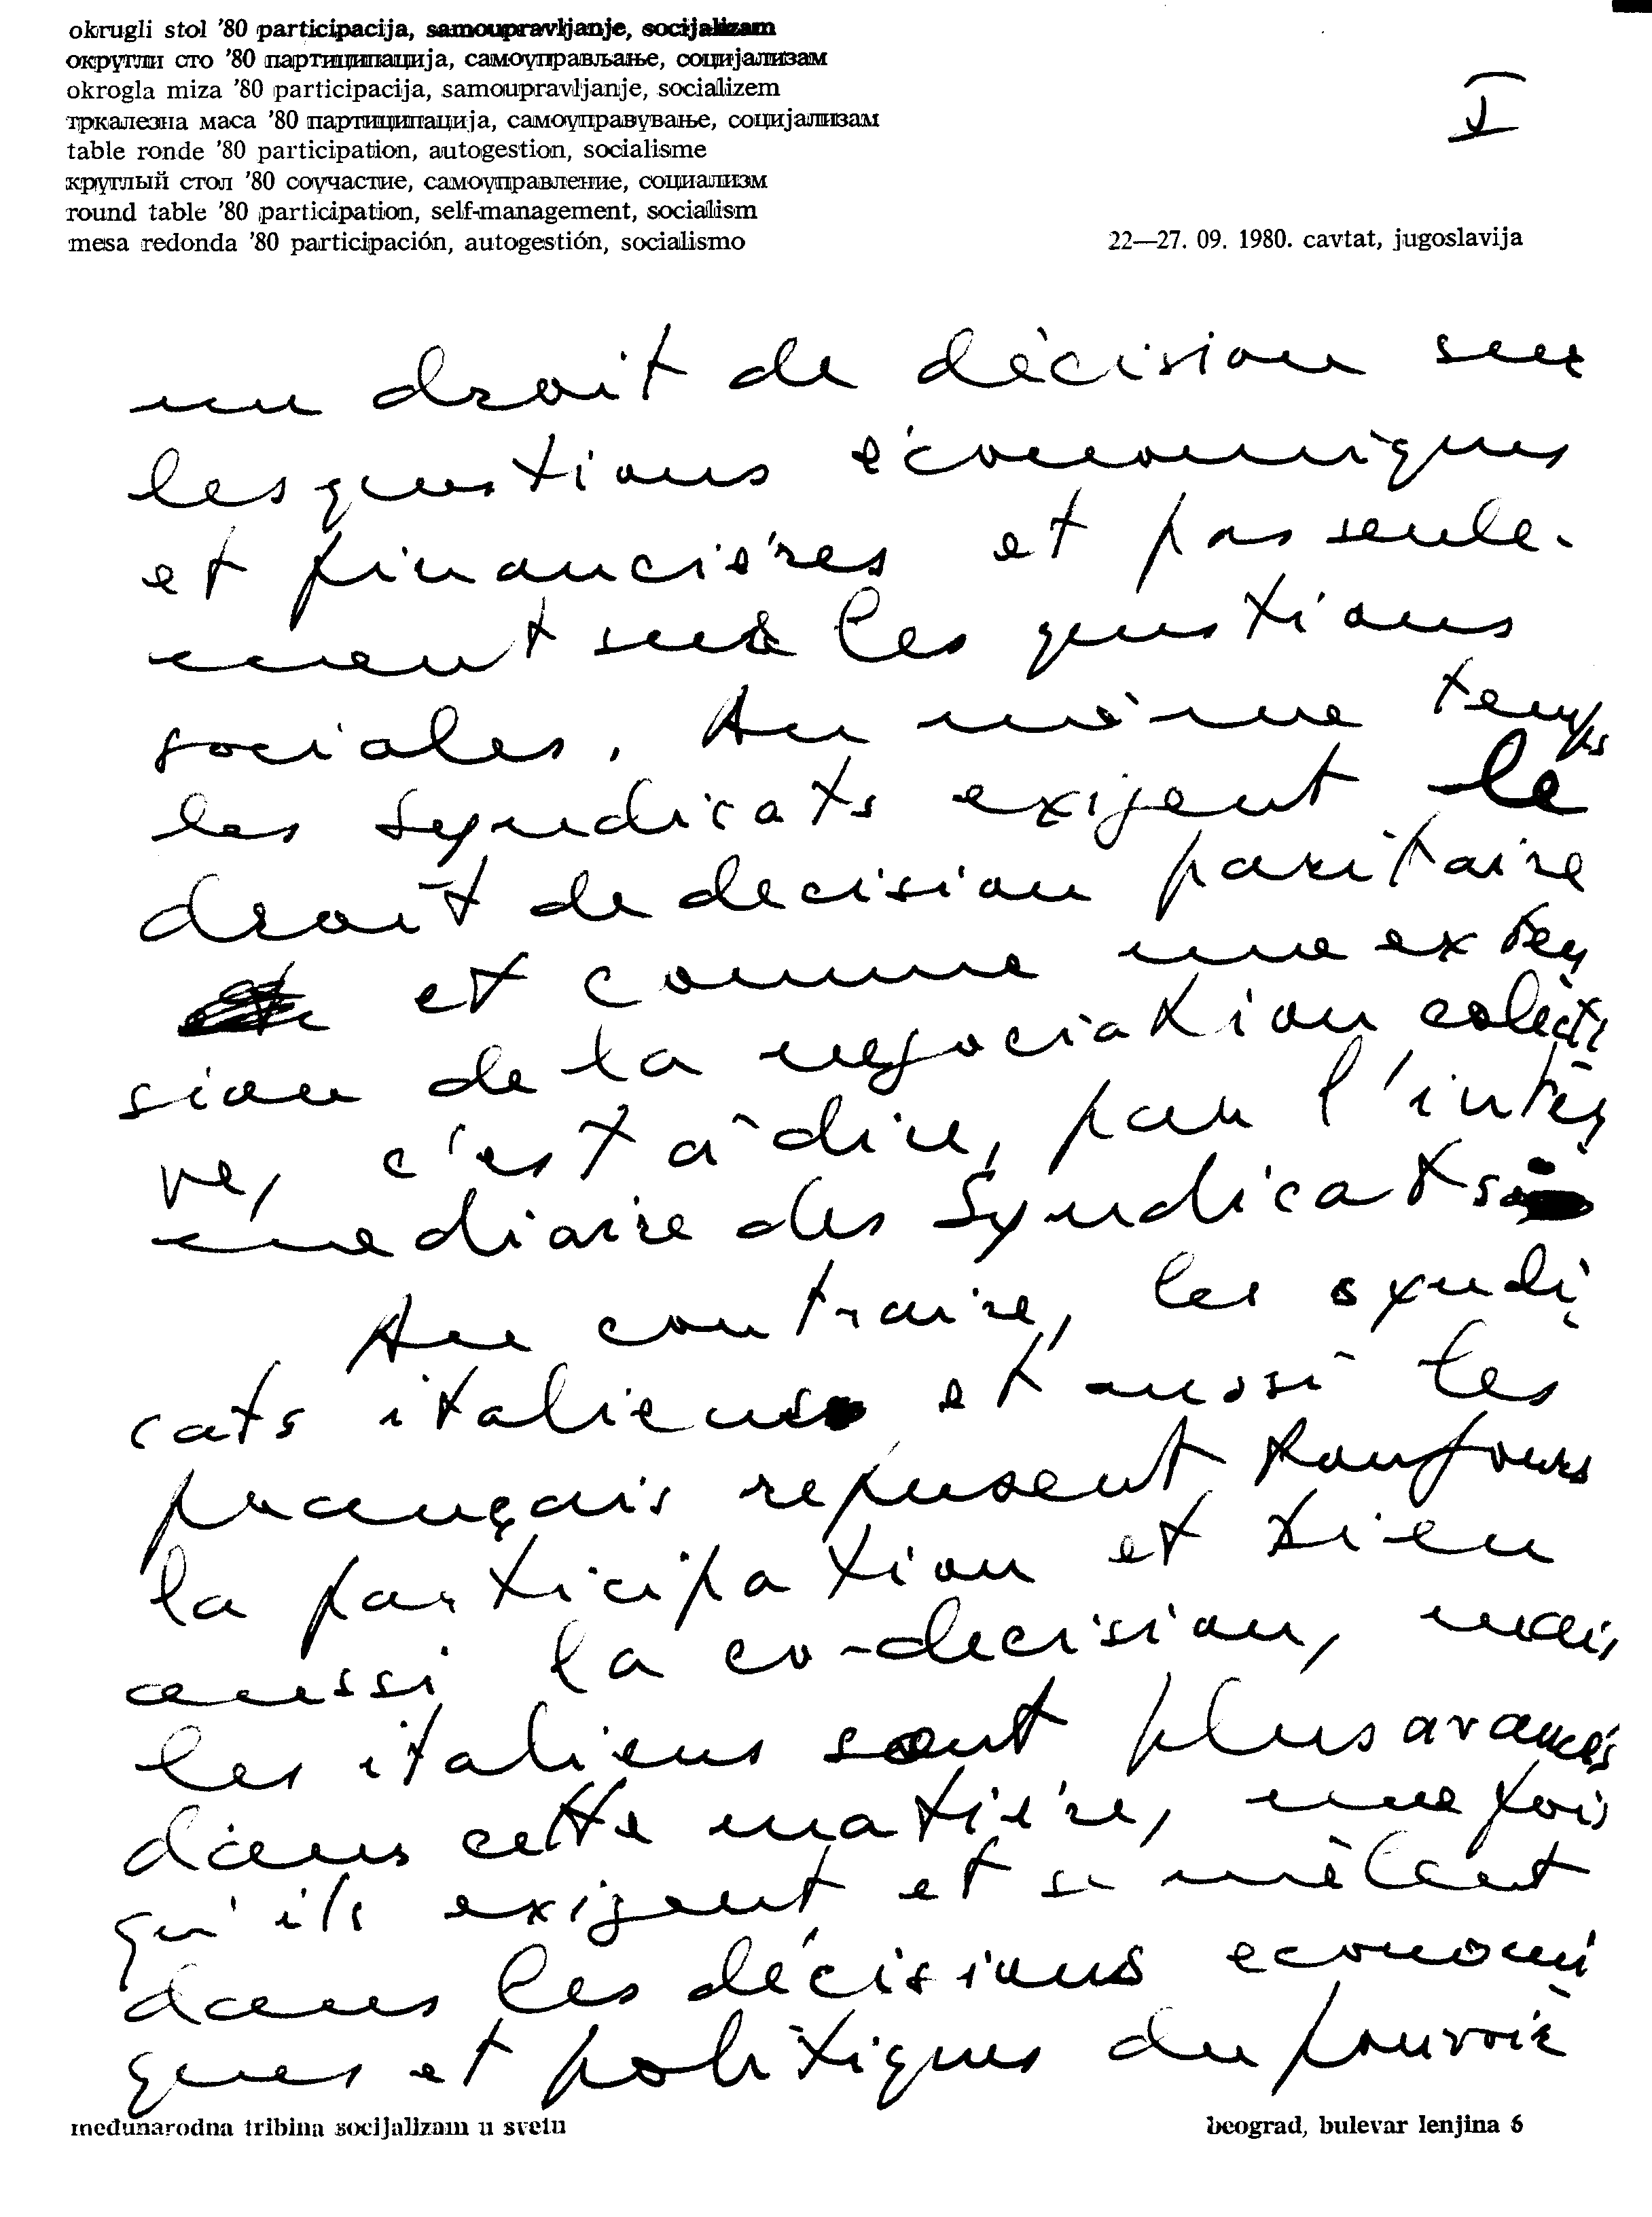 okrugli stol '80 participacija, samoupravljanje, socijalizam
округли сто '80 партиципација, самоуправљање, социјализам
okrogla miza '80 participacija, samoupravljanje, socializem
тркалезна маса '80 партиципација, самоуправување, социјализам
table ronde '80 participation, autogestion, socialisme
круглый стол '80 соучастие, самоуправление, социализм
round table '80 participation, self-management, socialism
mesa redonda '80 participación, autogestión, socialismo
22—27. 09. 1980. cavtat, jugoslavija
I
un droit de décision sur
les questions économiques
et financières et pas seule-
ment sur les questions
sociales. Au même temps
les Syndicats exigent le
droit de decision paritaire
et comme une exten
sion de la negociation colecti
ve, c'est à dire, par l'inter
mediaire des Syndicats
Au contraire, les syndi
cats italiens et aussi les
français refusent toujours
la participation et bien
aussi la co-decision, mais
les italiens sont plus avancés
dans cette matière, une fois
qu'ils exigent et se mêlent
dans les décisions economi
ques et politiques du pouvoir
međunarodna tribina socijalizam u svetu
beograd, bulevar lenjina 6